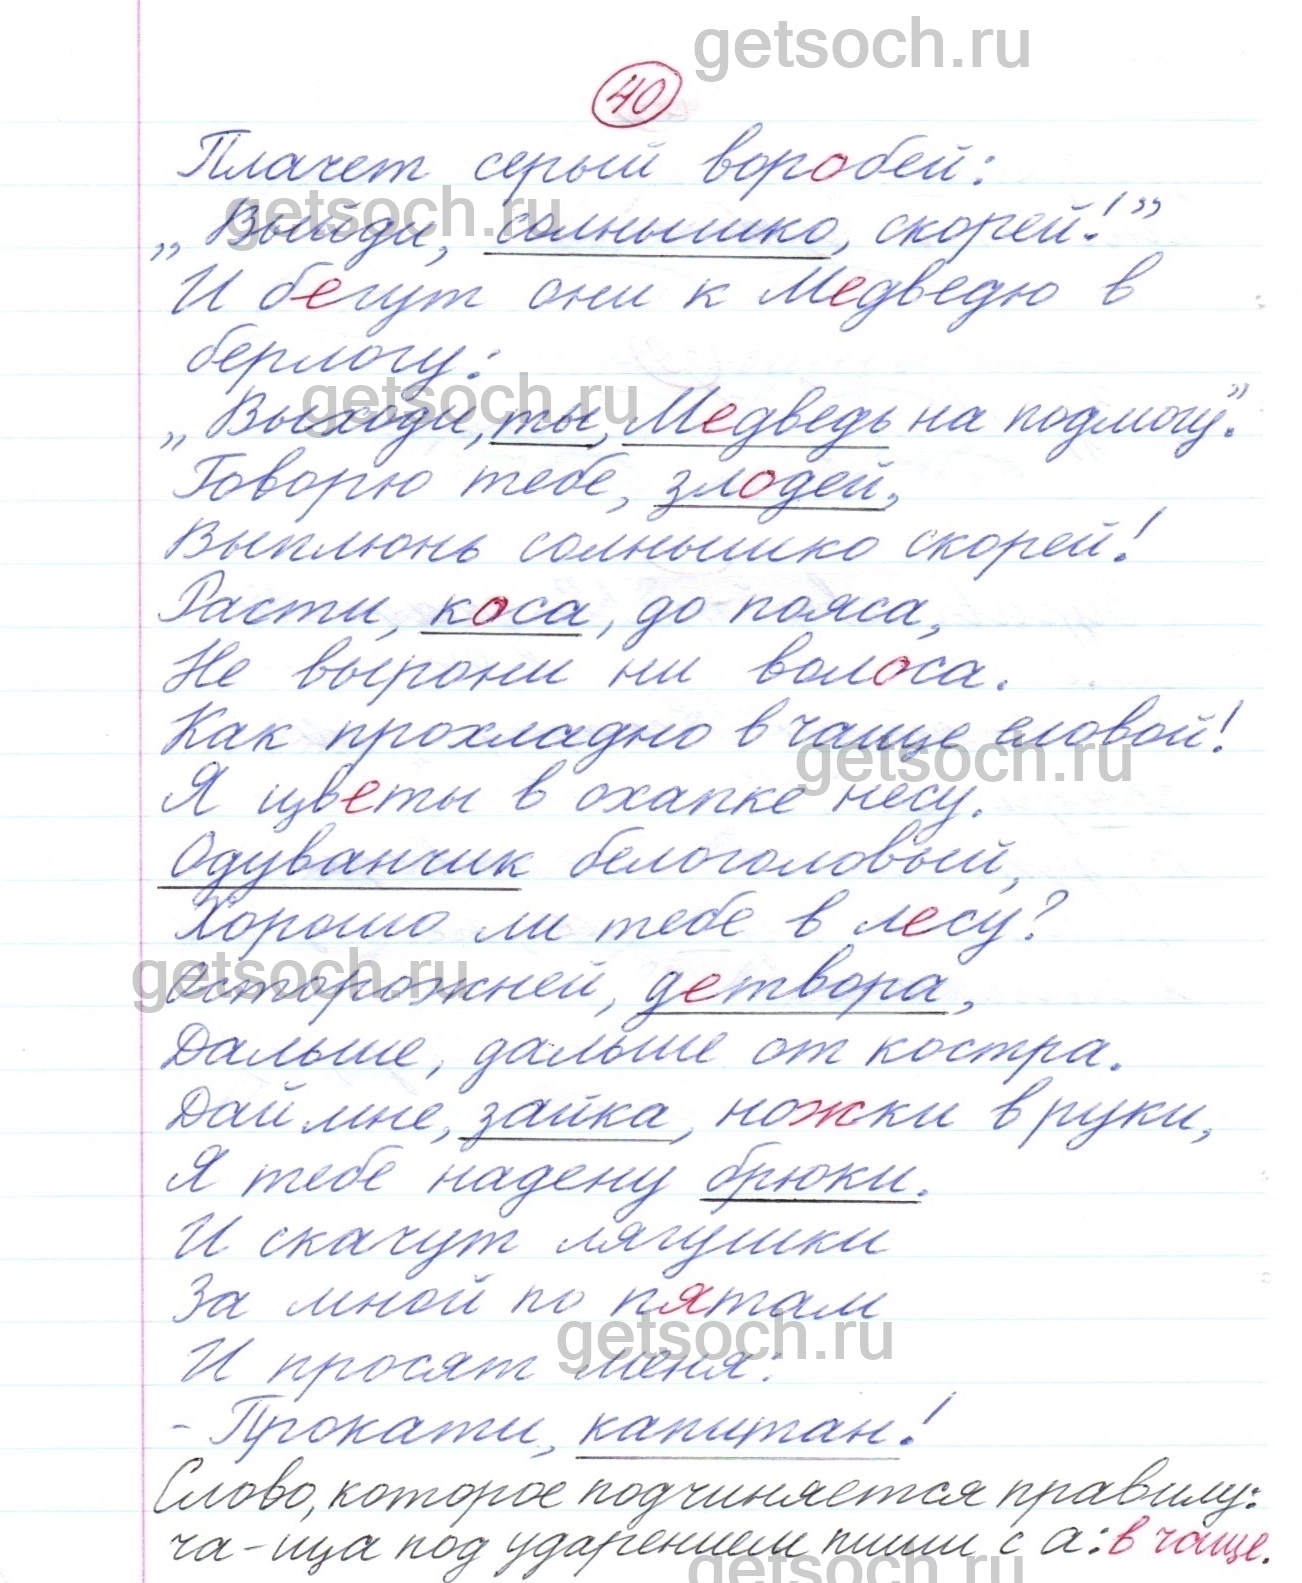 getsoch.ru
40
Плачет серый воробей:
„Выйди, солнышко, скорей!”
getsoch.ru
И бегут они к Медведю в
берлогу:
getsoch.ru
„Выходи, ты, Медведь на подмогу”.
Говорю тебе, злодей,
Выплюнь солнышко скорей!
Расти, коса, до пояса,
Не вырони ни волоса.
Как прохладно в чаще еловой!
getsoch.ru
Я цветы в охапке несу.
Одуванчик белоголовый,
Хорошо ли тебе в лесу?
getsoch.ru
Осторожней, детвора,
Дальше, дальше от костра.
Дай мне, зайка, ножки в руки,
Я тебе надену брюки.
И скачут лягушки
За мной по пятам
getsoch.ru
И просят меня:
- Прокати, капитан!
Слово, которое подчиняется правилу:
ча-ща под ударением пиши с а: в чаще.
getsoch.ru